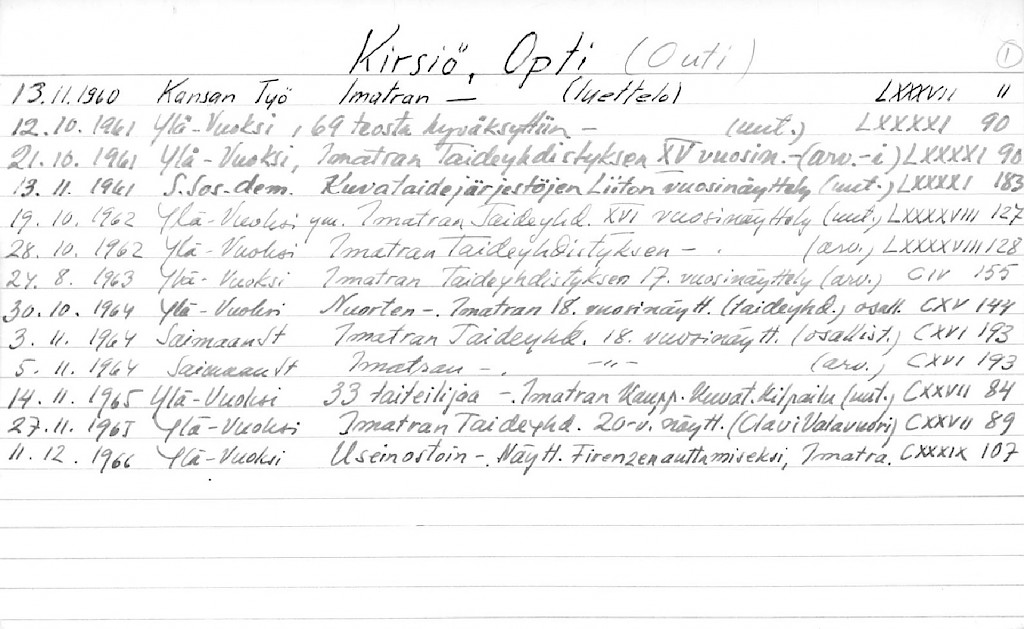 Kirsiö, Opti (Outi) 1
13.11.1960 Kansan Työ Imatran — (luettelo) LXXXVII 11
12.10.1961 Ylä-Vuoksi, 69 teosta hyväksyttiin - (mut.) LXXXXI 90
21.10.1961 Ylä-Vuoksi, Imatran Taideyhdistyksen XV vuosin.-(arv.-i) LXXXXI 90
13.11.1961 S.Sos-dem. Kuvataidejärjestöjen Liiton vuosinäyttely (mut.) LXXXXI 183
19.10.1962 Ylä-Vuoksi ym. Imatran Taideyhd. XVI vuosinäyttely (mut.) LXXXXVIII 127
28.10.1962 Ylä-Vuoksi Imatran Taideyhdistyksen - . (arv.) LXXXXVIII 128
24.8.1963 Ylä-Vuoksi Imatran Taideyhdistyksen 17. vuosinäyttely (arv.) CIV 155
30.10.1964 Ylä-Vuoksi Nuorten -. Imatran 18. vuosinäytt. (taideyhd.) osall. CXV 144
3.11.1964 SaimaanSt Imatran Taideyhd. 18. vuosinäytt. (osallist.) CXVI 193
5.11.1964 SaimaanSt Imatran -. -"- (arv.) CXVI 193
14.11.1965 Ylä-Vuoksi 33 taiteilijaa -. Imatran Kaupp. Kuvat.kilpailu (mut.) CXXVII 84
27.11.1965 Ylä-Vuoksi Imatran Taideyhd. 20-v. näytt. (Olavi Valavuori) CXXVII 89
11.12.1966 Ylä-Vuoksi Useinostoin -. Näytt. Firenzen auttamiseksi, Imatra. CXXXIX 107